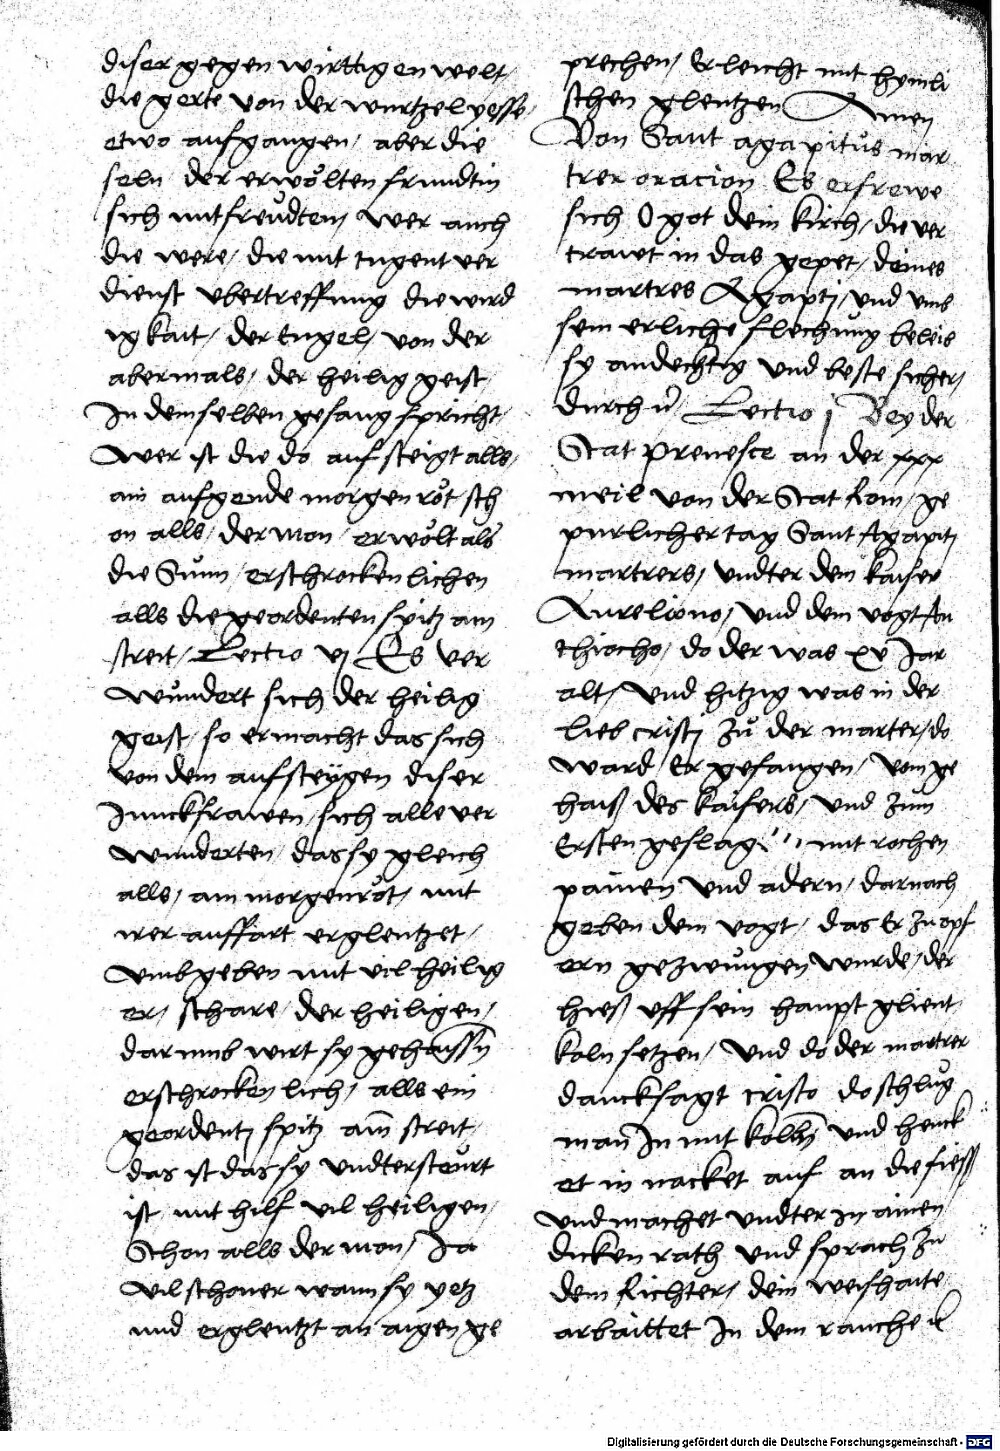 diser gegen wirttigen welt /
die gerte von der wurtzel yesse /
etwo aufgangen / aber die
seln / der erwölten frundtin
sich mitfreudten / wer auch
die were / die mit tugent ver
dienst vbertreffung die wird
igkait / der engel / von der
abermals / der heilig geist /
In demselben gesang spricht /
Wer ist die do aufsteigt alls /
ain aufgende morgen röt / sch
on alls / der mon / erwölt als
die Sunn / erschrockenlichen
alls die geordenten spitz am
streit / Lectio vj Es ver
wundert sich der heilig
geist / so er macht das sich
von dem aufsteÿgen diser
Junckfrawen / sich alle ver
wunderten / das sy gleich
alls / ain morgenröt / mit
irer auffart erglentzet /
Vmbgeben mit vil heilig
er / schare / der heiligen /
darumb wirt sy gehaissen
erschrockenlich / alls ein
geordentj spitz am streit /
das ist das sy vndtersteurt
ist / mit hilf vil heiligen /
Schon alls der mon / Ja
vil schoner wann sy yetz
und erglentzt an aigen ge
prechen / Erleicht mit hymli
schen glentzen Amen
Von Sant agapitus mar
trer oracion Es erfrewe
sich O got dein kirch / die ver
trawt in das gepet / deines
martres Agapitj / und vmb
sein erliche flechung beleib
sy andechtig und beste sicher /
durch Lectio j Bey der
Stat prenesce an der xxx
meil von der Stat Rom / ge
purlicher tag Sant Agapitj
martrers / vndter dem kaiser
Aureliono / und dem vogt An
thiocho / do der was xv Jar
alt / und hitzig was in der
lieb cristj zu der marter / do
ward Er gefangen / vom ge
haiß des kaisers / und zum
Ersten geslag mit rochen
und adern / darnach
geben dem vogt / das Er zu opf
ern gezwungen wurde / der
hieß vff sein haupt glient
koln setzen / Und do der martrer
dancksagt cristo do schlug
man In mit kolbn und henck
et in nacket auf an die fiess
und machet vndter in ainen
dicken rach und sprach zu
dem Richter / dein weishaite
arbaittet In dem rauche